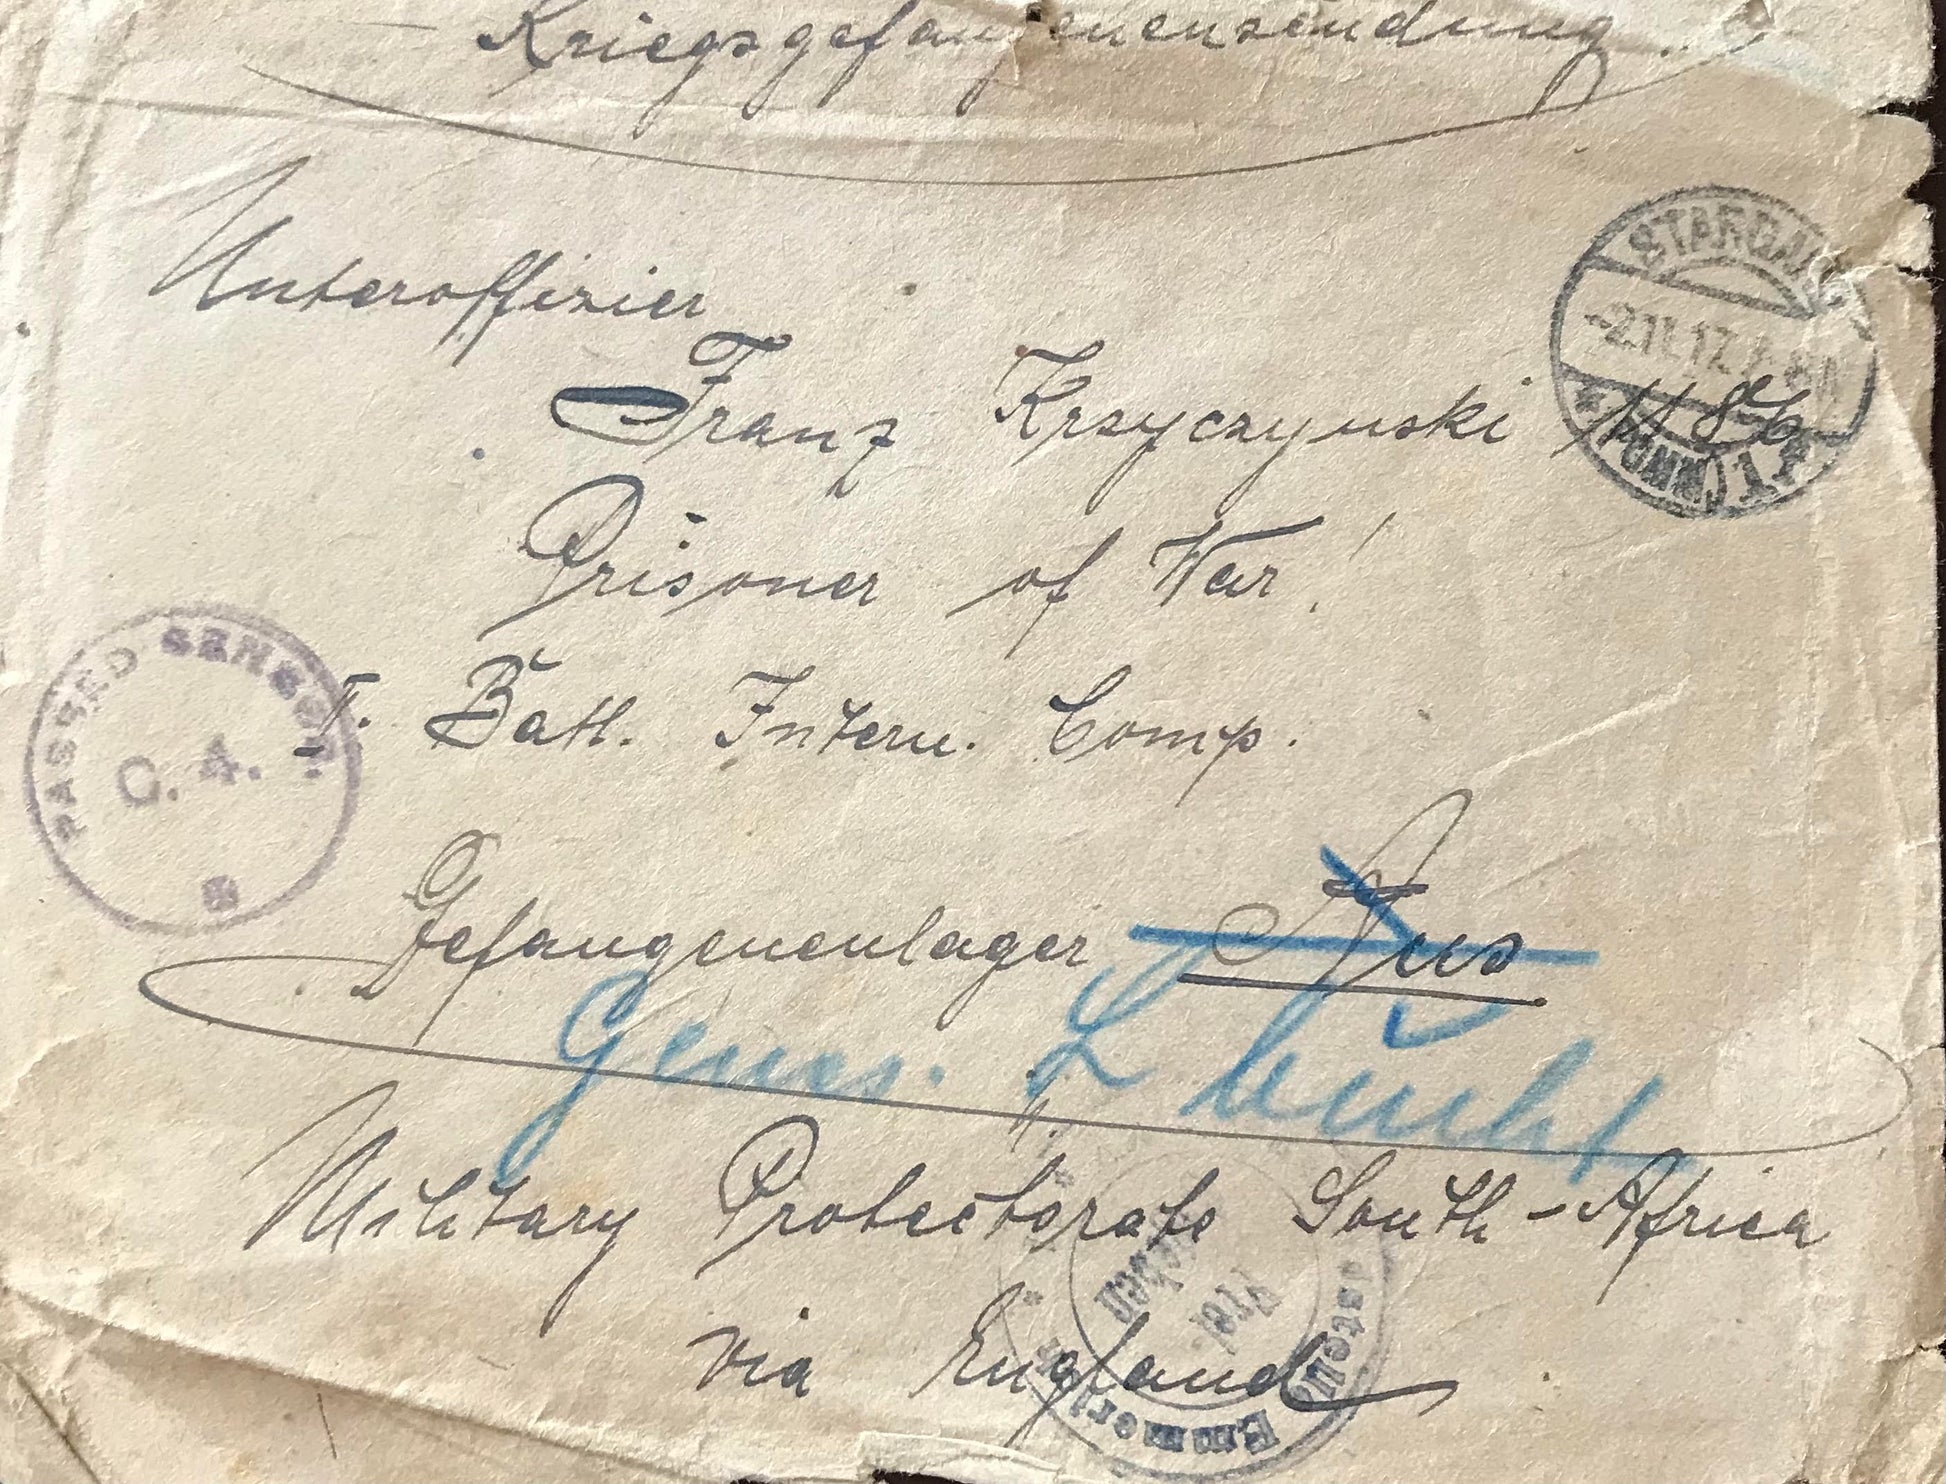 Kriegsgefangenensendung.
STARGARD
-2.11.17.
(POMM) 1
Unteroffizier
Franz Krzyczynski
Prisoner of War!
PASSED CENSOR.
C. 4.
Batl. Intern. Comp.
Gefangenenlager Aus
Military Protectorate South-Africa
via England
Frei
Emmerich